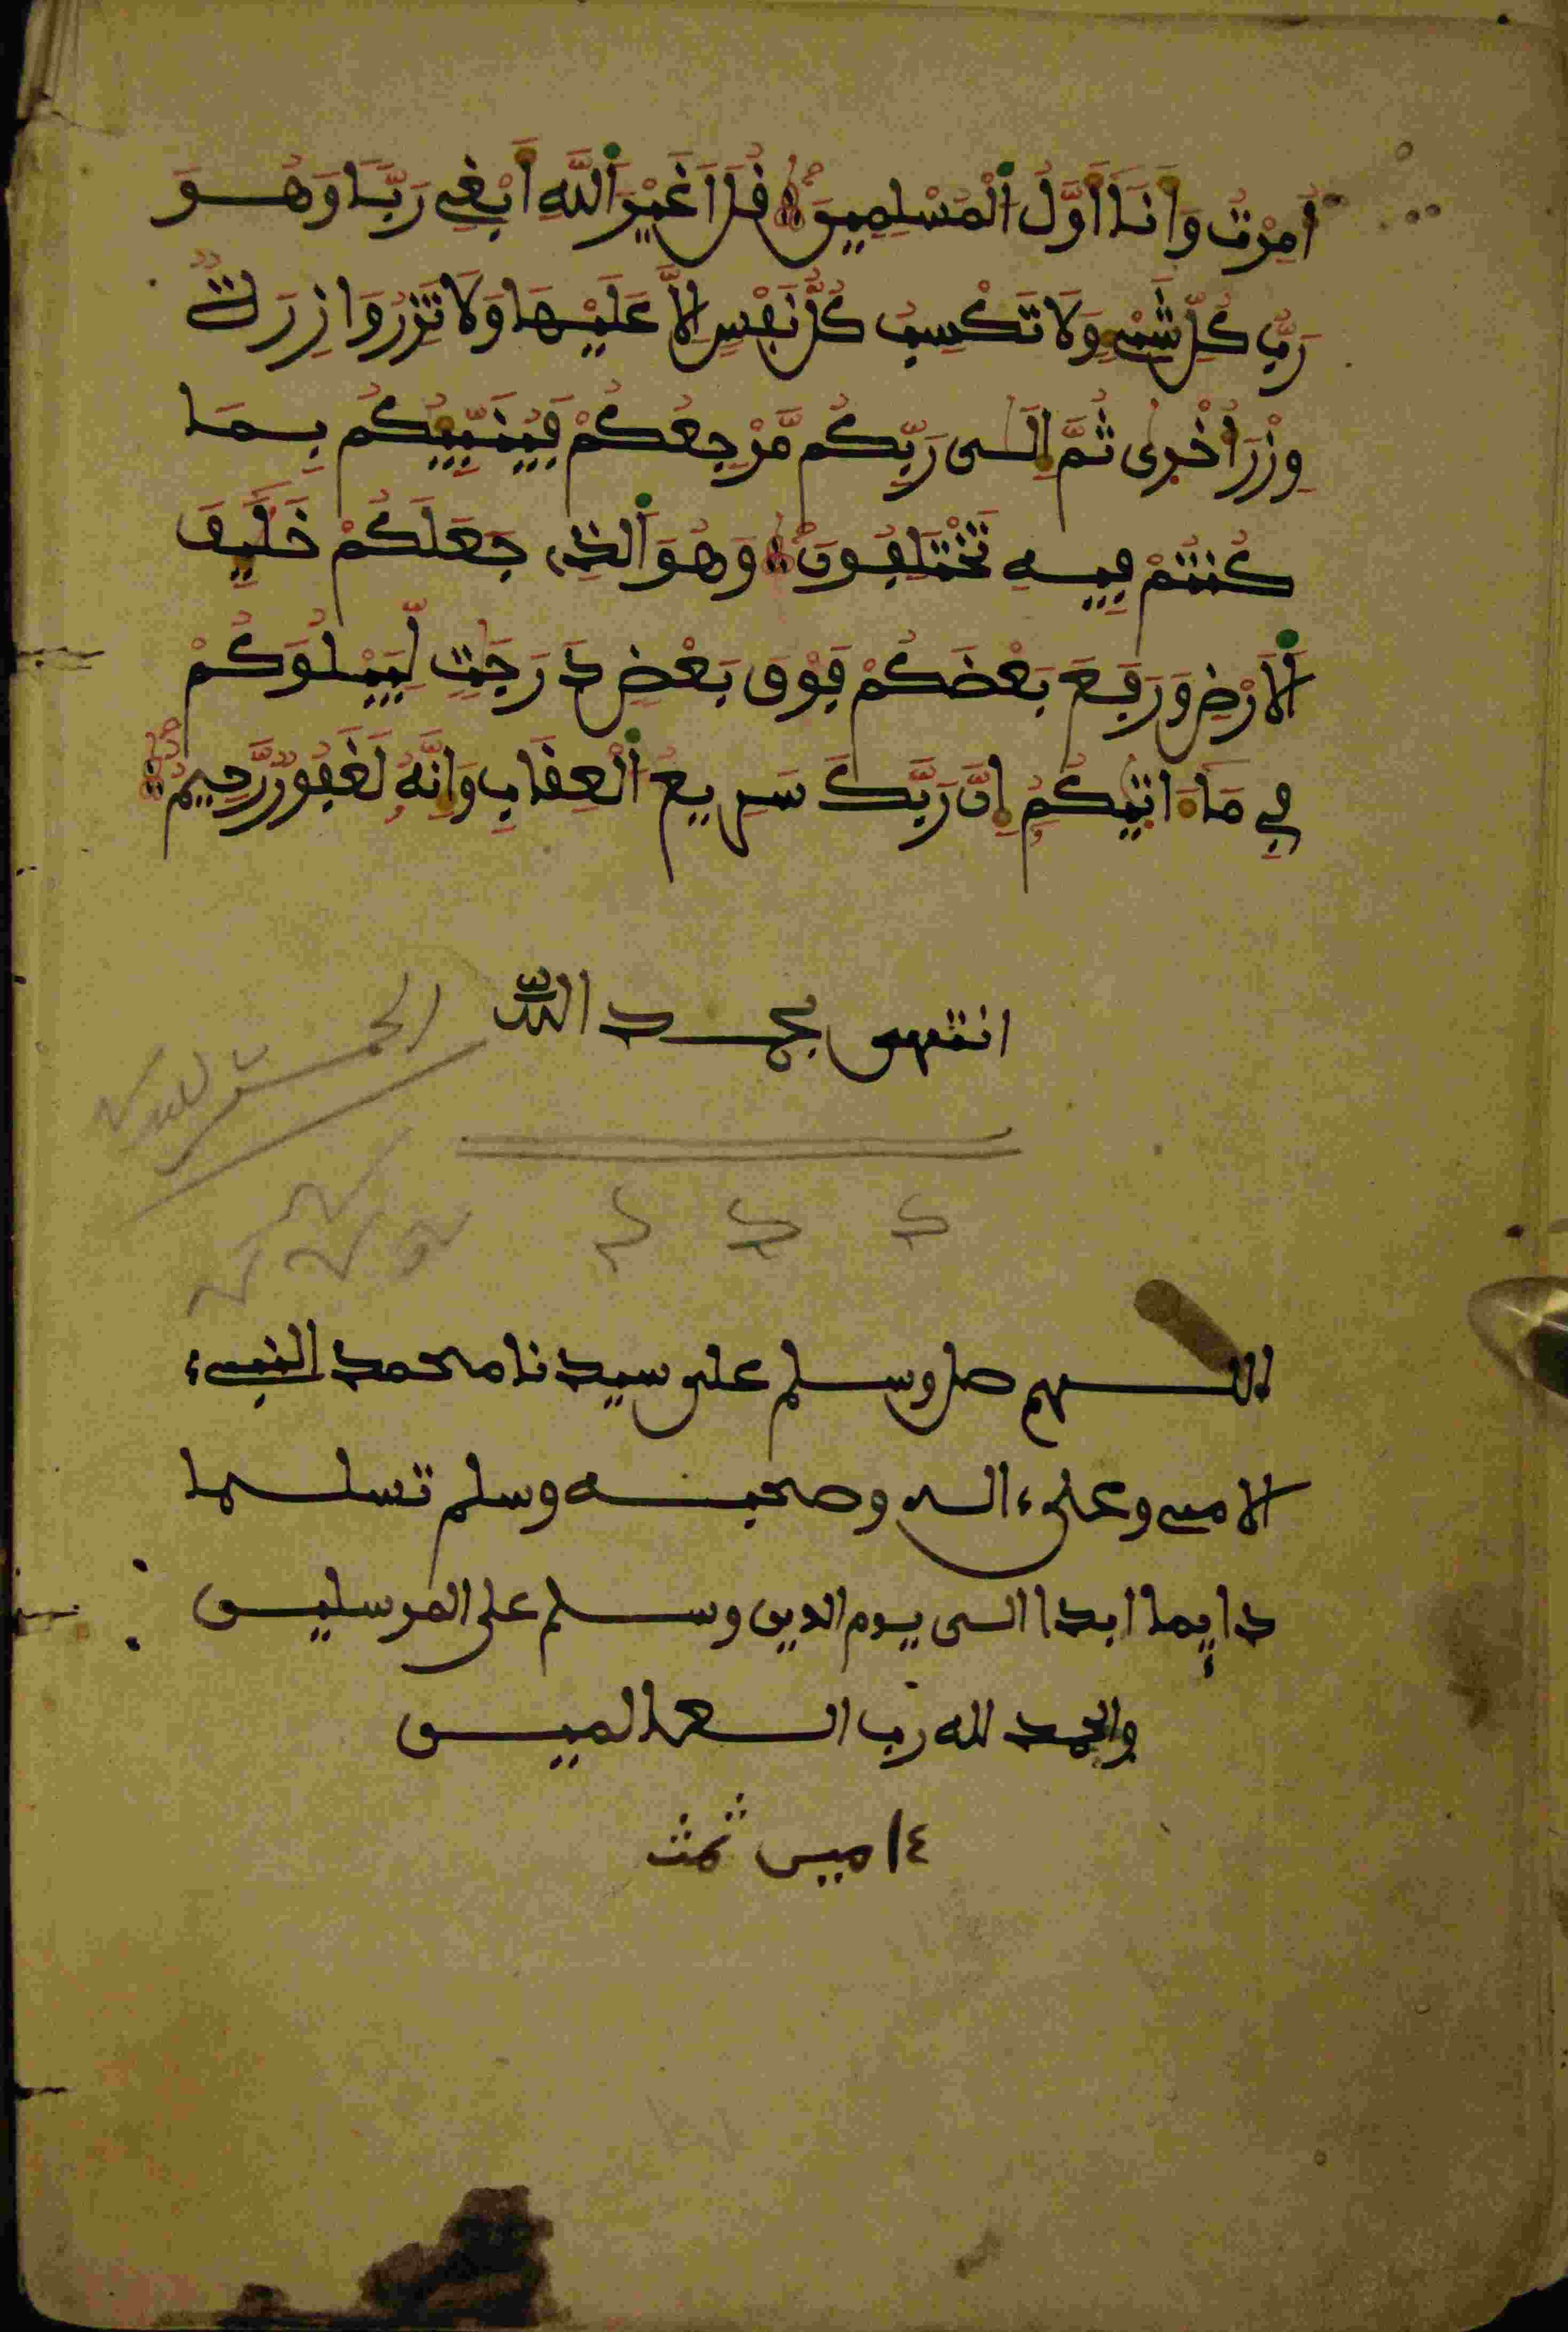 أُمِرْتُ وَأَنَا أَوَّلُ الْمُسْلِمِينَ قُلْ أَغَيْرَ اللَّهِ أَبْغِي رَبًّا وَهُوَ
رَبُّ كُلِّ شَيْءٍ وَلَا تَكْسِبُ كُلُّ نَفْسٍ إِلَّا عَلَيْهَا وَلَا تَزِرُ وَازِرَةٌ
وِزْرَ أُخْرَى ثُمَّ إِلَى رَبِّكُم مَّرْجِعُكُمْ فَيُنَبِّئُكُم بِمَا
كُنتُمْ فِيهِ تَخْتَلِفُونَ وَهُوَ الَّذِي جَعَلَكُمْ خَلَٰئِفَ
الْأَرْضِ وَرَفَعَ بَعْضَكُمْ فَوْقَ بَعْضٍ دَرَجَٰتٍ لِّيَبْلُوَكُمْ
فِي مَا ءَاتَيٰكُمُ إِنَّ رَبَّكَ سَرِيعُ الْعِقَابِ وَإِنَّهُ لَغَفُورٌ رَّحِيمٌ
انتهى بحمد الله
اللهم صل وسلم على سيدنا محمد النبيء
الامي وعلى ءاله وصحبه وسلم تسليما
دايما ابدا الى يوم الدين وسلم على المرسلين
والحمد لله رب العالمين